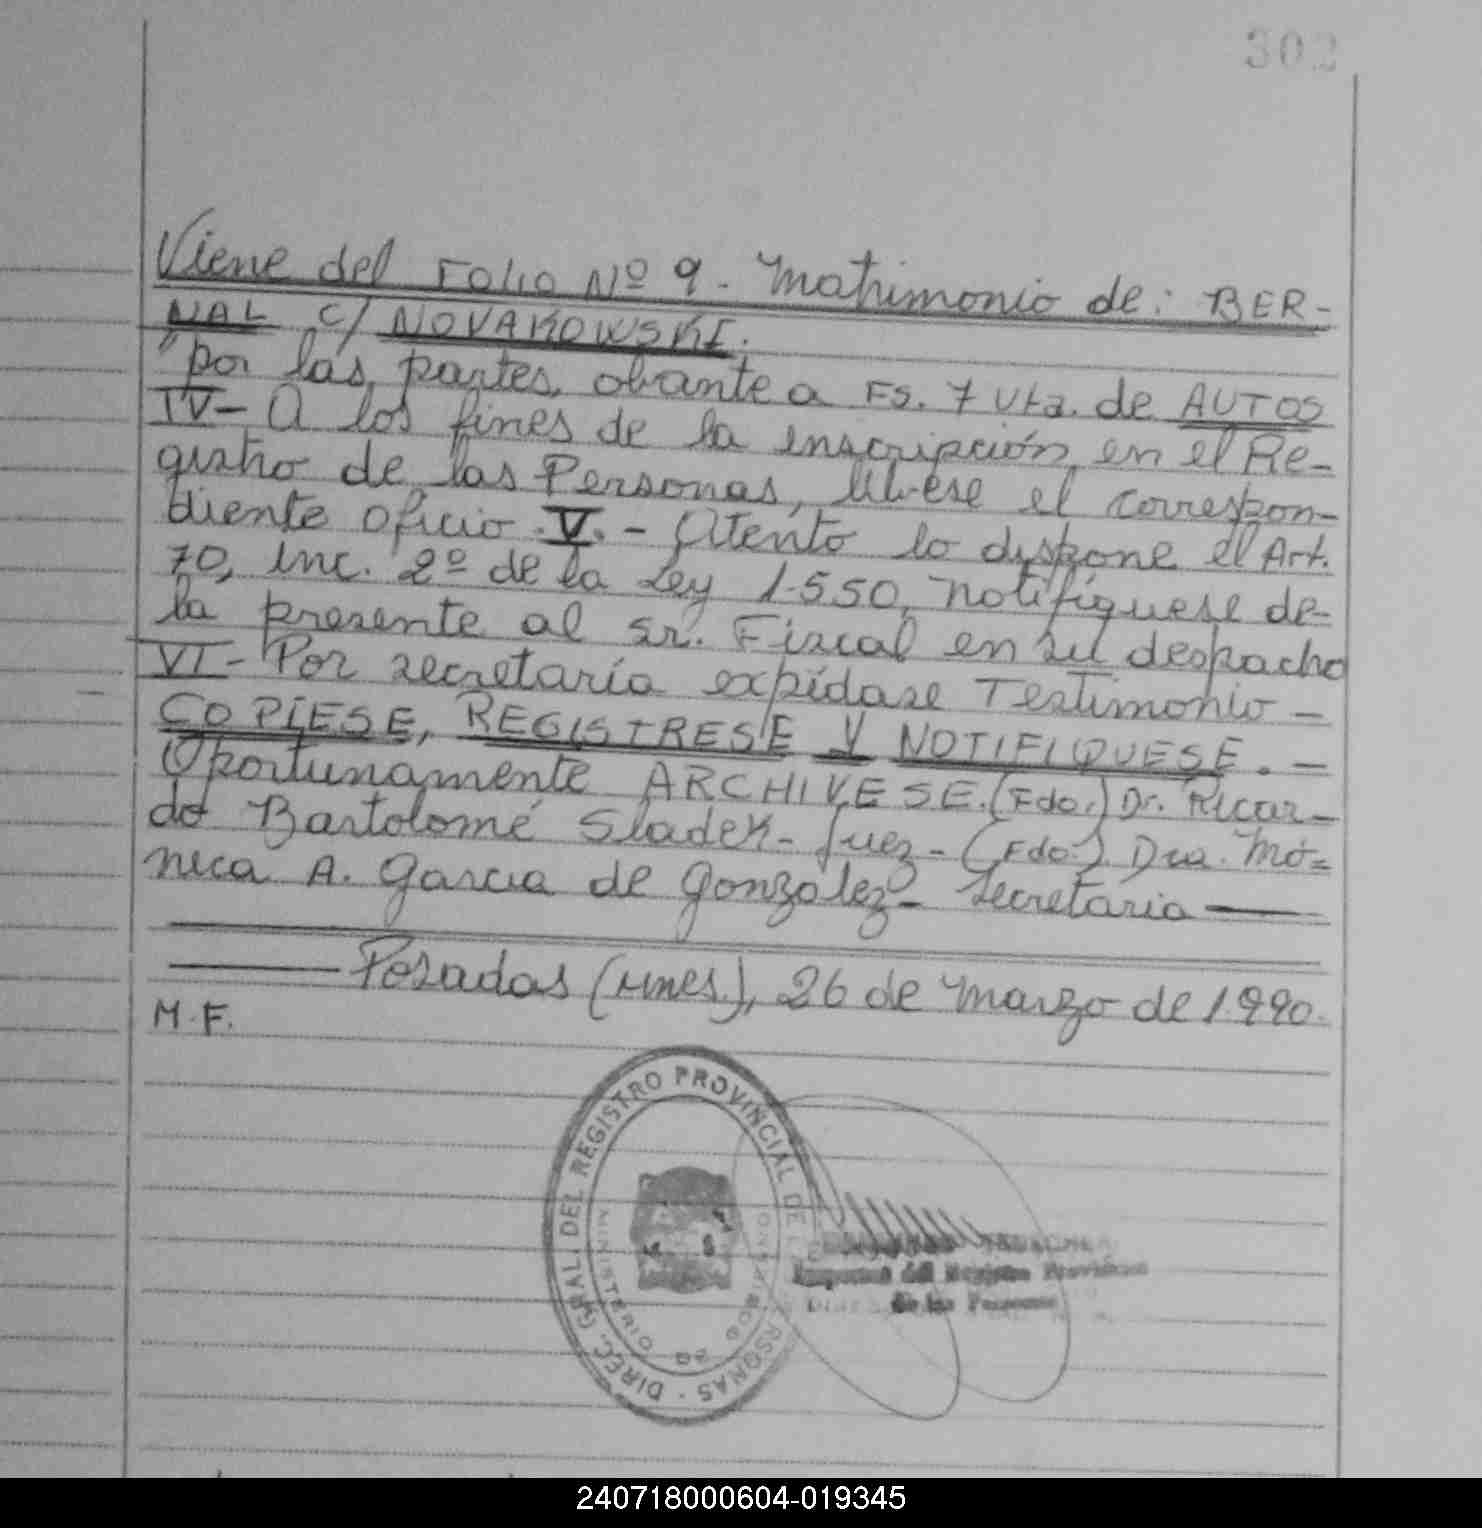 302
Viene del Folio Nº 9. Matrimonio de: BER-
NAL c/ NOVAKOWSKI.
por las partes, obrante a Fs. 7 vta. de AUTOS
IV- A los fines de la inscripción en el Re-
gistro de las Personas, líbrese el correspon-
diente oficio. V.- Atento lo dispone el Art.
70, Inc. 2º de la Ley 1.550, notifíquese de
la presente al Sr. Fiscal en su despacho
VI- Por secretaría expídase Testimonio -
COPIESE, REGISTRESE Y NOTIFIQUESE. -
Oportunamente ARCHIVESE. (Fdo.) Dr. Ricar-
do Bartolomé Sladek- Juez- (Fdo.) Dra. Mó=
nica A. Garcia de González- Secretaria
Posadas (Mnes.), 26 de Marzo de 1.990.
M.F.
DIREC. GRAL. DEL REGISTRO PROVINCIAL DE PERSONAS
MINISTERIO DE GOBIERNO
del Registro Provincial
de las Personas
240718000604-019345